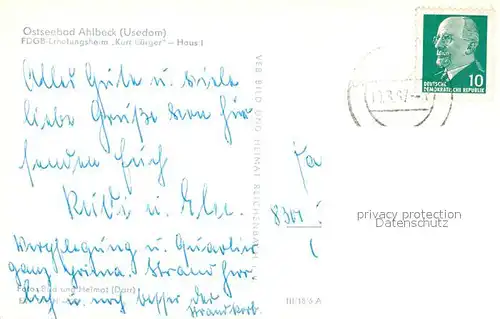 Ostseebad Ahlbeck (Usedom)
FDGB-Erholungsheim „Kurt Bürger" – Haus I
Alles Gute u. viele
liebe Grüße von hier
senden Euch
Rudi u. Else.
Verpflegung u. Quartier
ganz prima. Strand herr
lich u. noch besser der
Strandkorb.
Foto: Bild und Heimat (Darr)
III/18/6 A
VEB BILD UND HEIMAT REICHENBACH
DEUTSCHE
DEMOKRATISCHE REPUBLIK
10
8301
privacy protection
Datenschutz